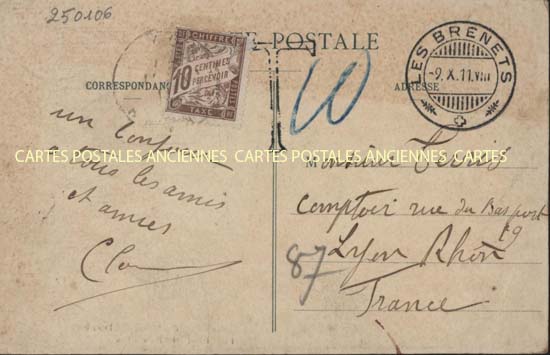 250106
E POSTALE
CHIFFRE
10 CENTIMES
A PERCEVOIR
TAXE
T
10
LES BRENETS
-9.X.11.VIII
CORRESPONDANC
ADRESSE
un
a tous les amis
et amies
CARTES POSTALES ANCIENNES CARTES POSTALES ANCIENNES CARTES
Monsieur
Comptoir rue du Bas port
19
Lyon Rhône
France
87